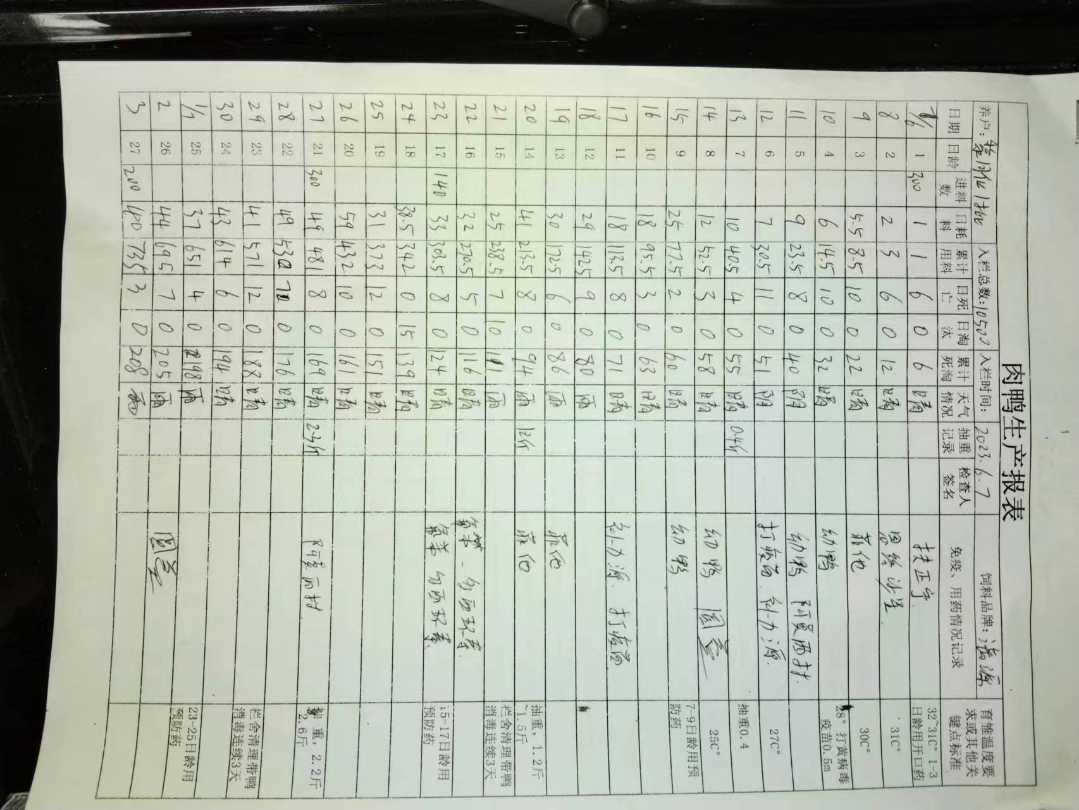 肉鸭生产报表
养户: 入栏总数:10500 入栏时间: 2023.6.7 饲料品牌:
日期 日龄 进料数 日耗料 累计用料 日死亡 日淘汰 累计死淘 天气情况 抽重记录 检查人签名 免疫、用药情况记录 育雏温度要求或其他关键点标准
1 300 1 1 6 0 6 晴 扶正宁 32~31C° 1-3日龄用开口药
8 2 2 3 6 0 12 晴 31C°
9 3 5.5 8.5 10 0 22 晴 菲他 30C°
10 4 6 14.5 10 0 32 晴 幼鸭 28° 打黄病毒疫苗0.5m
11 5 9 23.5 8 0 40 阴 幼鸭 阿莫西林
12 6 7 30.5 11 0 51 阴 打疫苗 27C°
13 7 10 40.5 4 0 55 晴 0.4斤 抽重0.4
14 8 12 52.5 3 0 58 晴 幼鸭 25C°
15 9 25 77.5 2 0 60 晴 幼鸭 7-9日龄用预防药
16 10 18 95.5 3 0 63 晴
17 11 18 113.5 8 0 71 晴 打疫苗
18 12 29 142.5 9 0 80 雨
19 13 30 172.5 6 0 86 雨 菲他
20 14 41 213.5 8 0 94 雨 1.2斤 菲他 抽重, 1.2斤~1.5斤
21 15 25 238.5 7 10 111 雨 栏舍清理带鸭消毒连续3天
22 16 32 270.5 5 0 116 晴
23 17 140 33 303.5 8 0 124 晴 15-17日龄用预防药
24 18 38.5 342 0 15 139 晴
25 19 31 373 12 0 151 晴
26 20 59 432 10 0 161 晴
27 21 300 49 481 8 0 169 晴 2.3斤 阿莫西林 重, 2.2斤 2.6斤
28 22 49 530 7 0 176 晴
29 23 41 571 12 0 188 晴 栏舍清理带鸭消毒连续3天
30 24 43 614 6 0 194 晴
25 37 651 4 0 198 雨 23-25日龄用预防药
2 26 44 695 7 0 205 雨
3 27 200 40 735 3 0 208